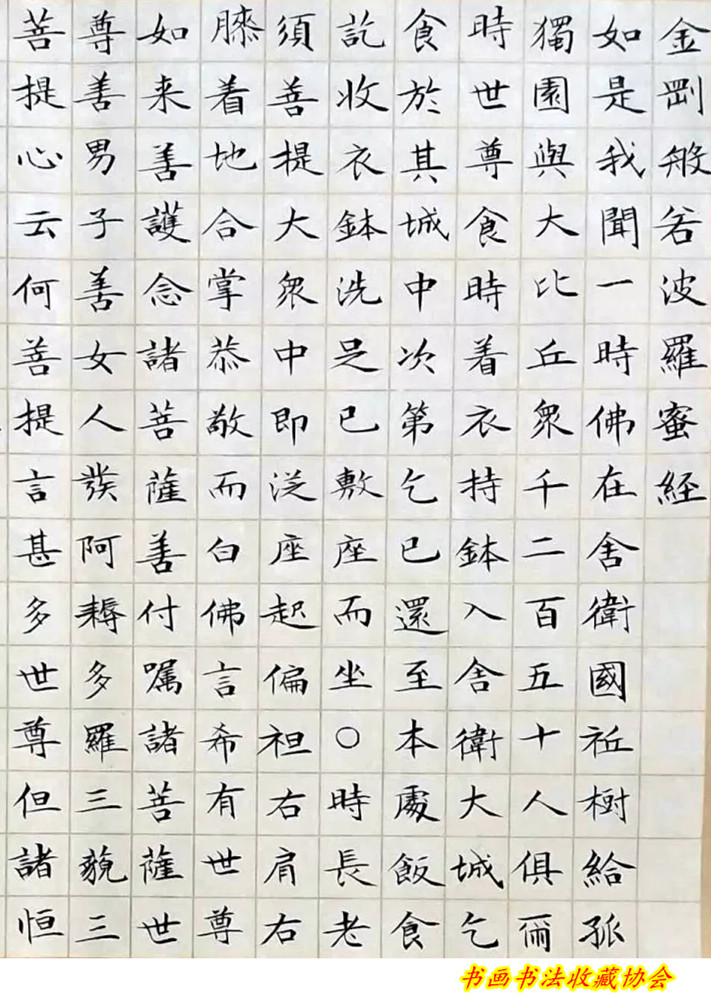 金剛般若波羅蜜経
如是我聞一時佛在舍衛國祇樹給孤
獨園與大比丘衆千二百五十人俱爾
時世尊食時着衣持鉢入舍衛大城乞
食於其城中次第乞已還至本處飯食
訖收衣鉢洗足已敷座而坐○時長老
須善提大衆中即従座起偏袒右肩右
膝着地合掌恭敬而白佛言希有世尊
如来善護念諸菩薩善付嘱諸菩薩世
尊善男子善女人發阿耨多羅三藐三
菩提心云何菩提言甚多世尊但諸恒
书画书法收藏协会